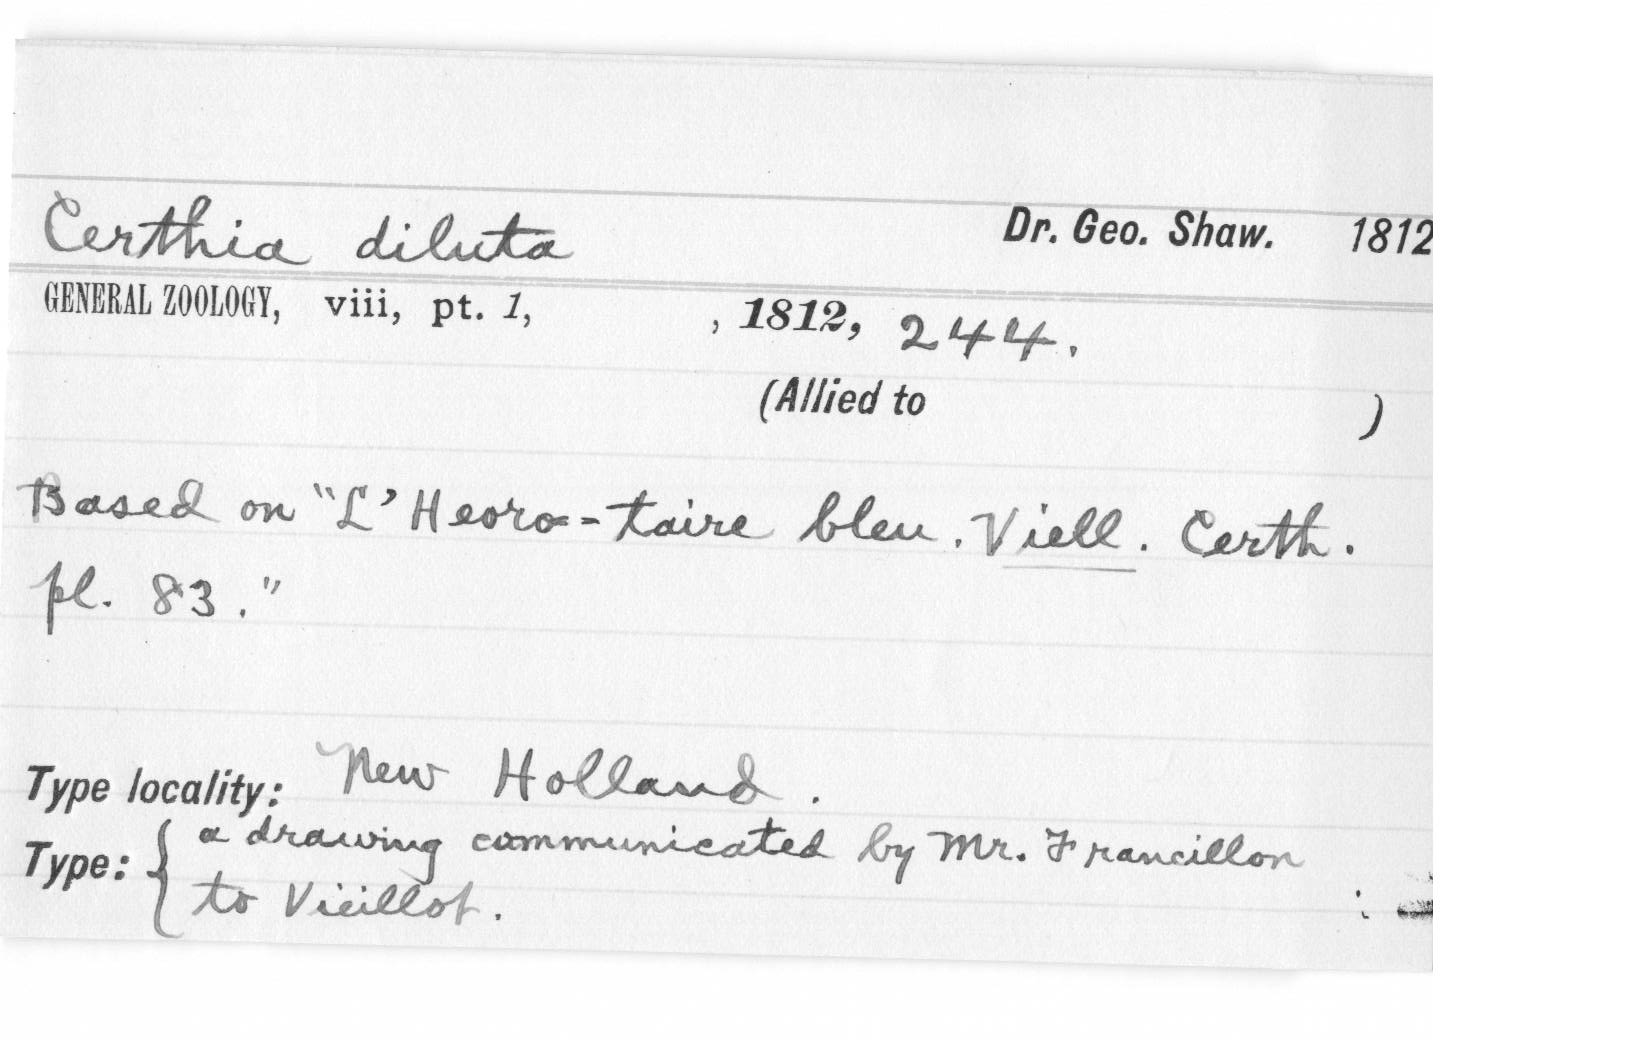 Certhia diluta Dr. Geo. Shaw. 1812
GENERAL ZOOLOGY, viii, pt. 1, , 1812, 244.
(Allied to )
Based on "L'Heoro=-taire bleu. Viell. Certh.
pl. 83."
Type locality: New Holland.
Type: { a drawing communicated by Mr. Francillon
to Vieillot.